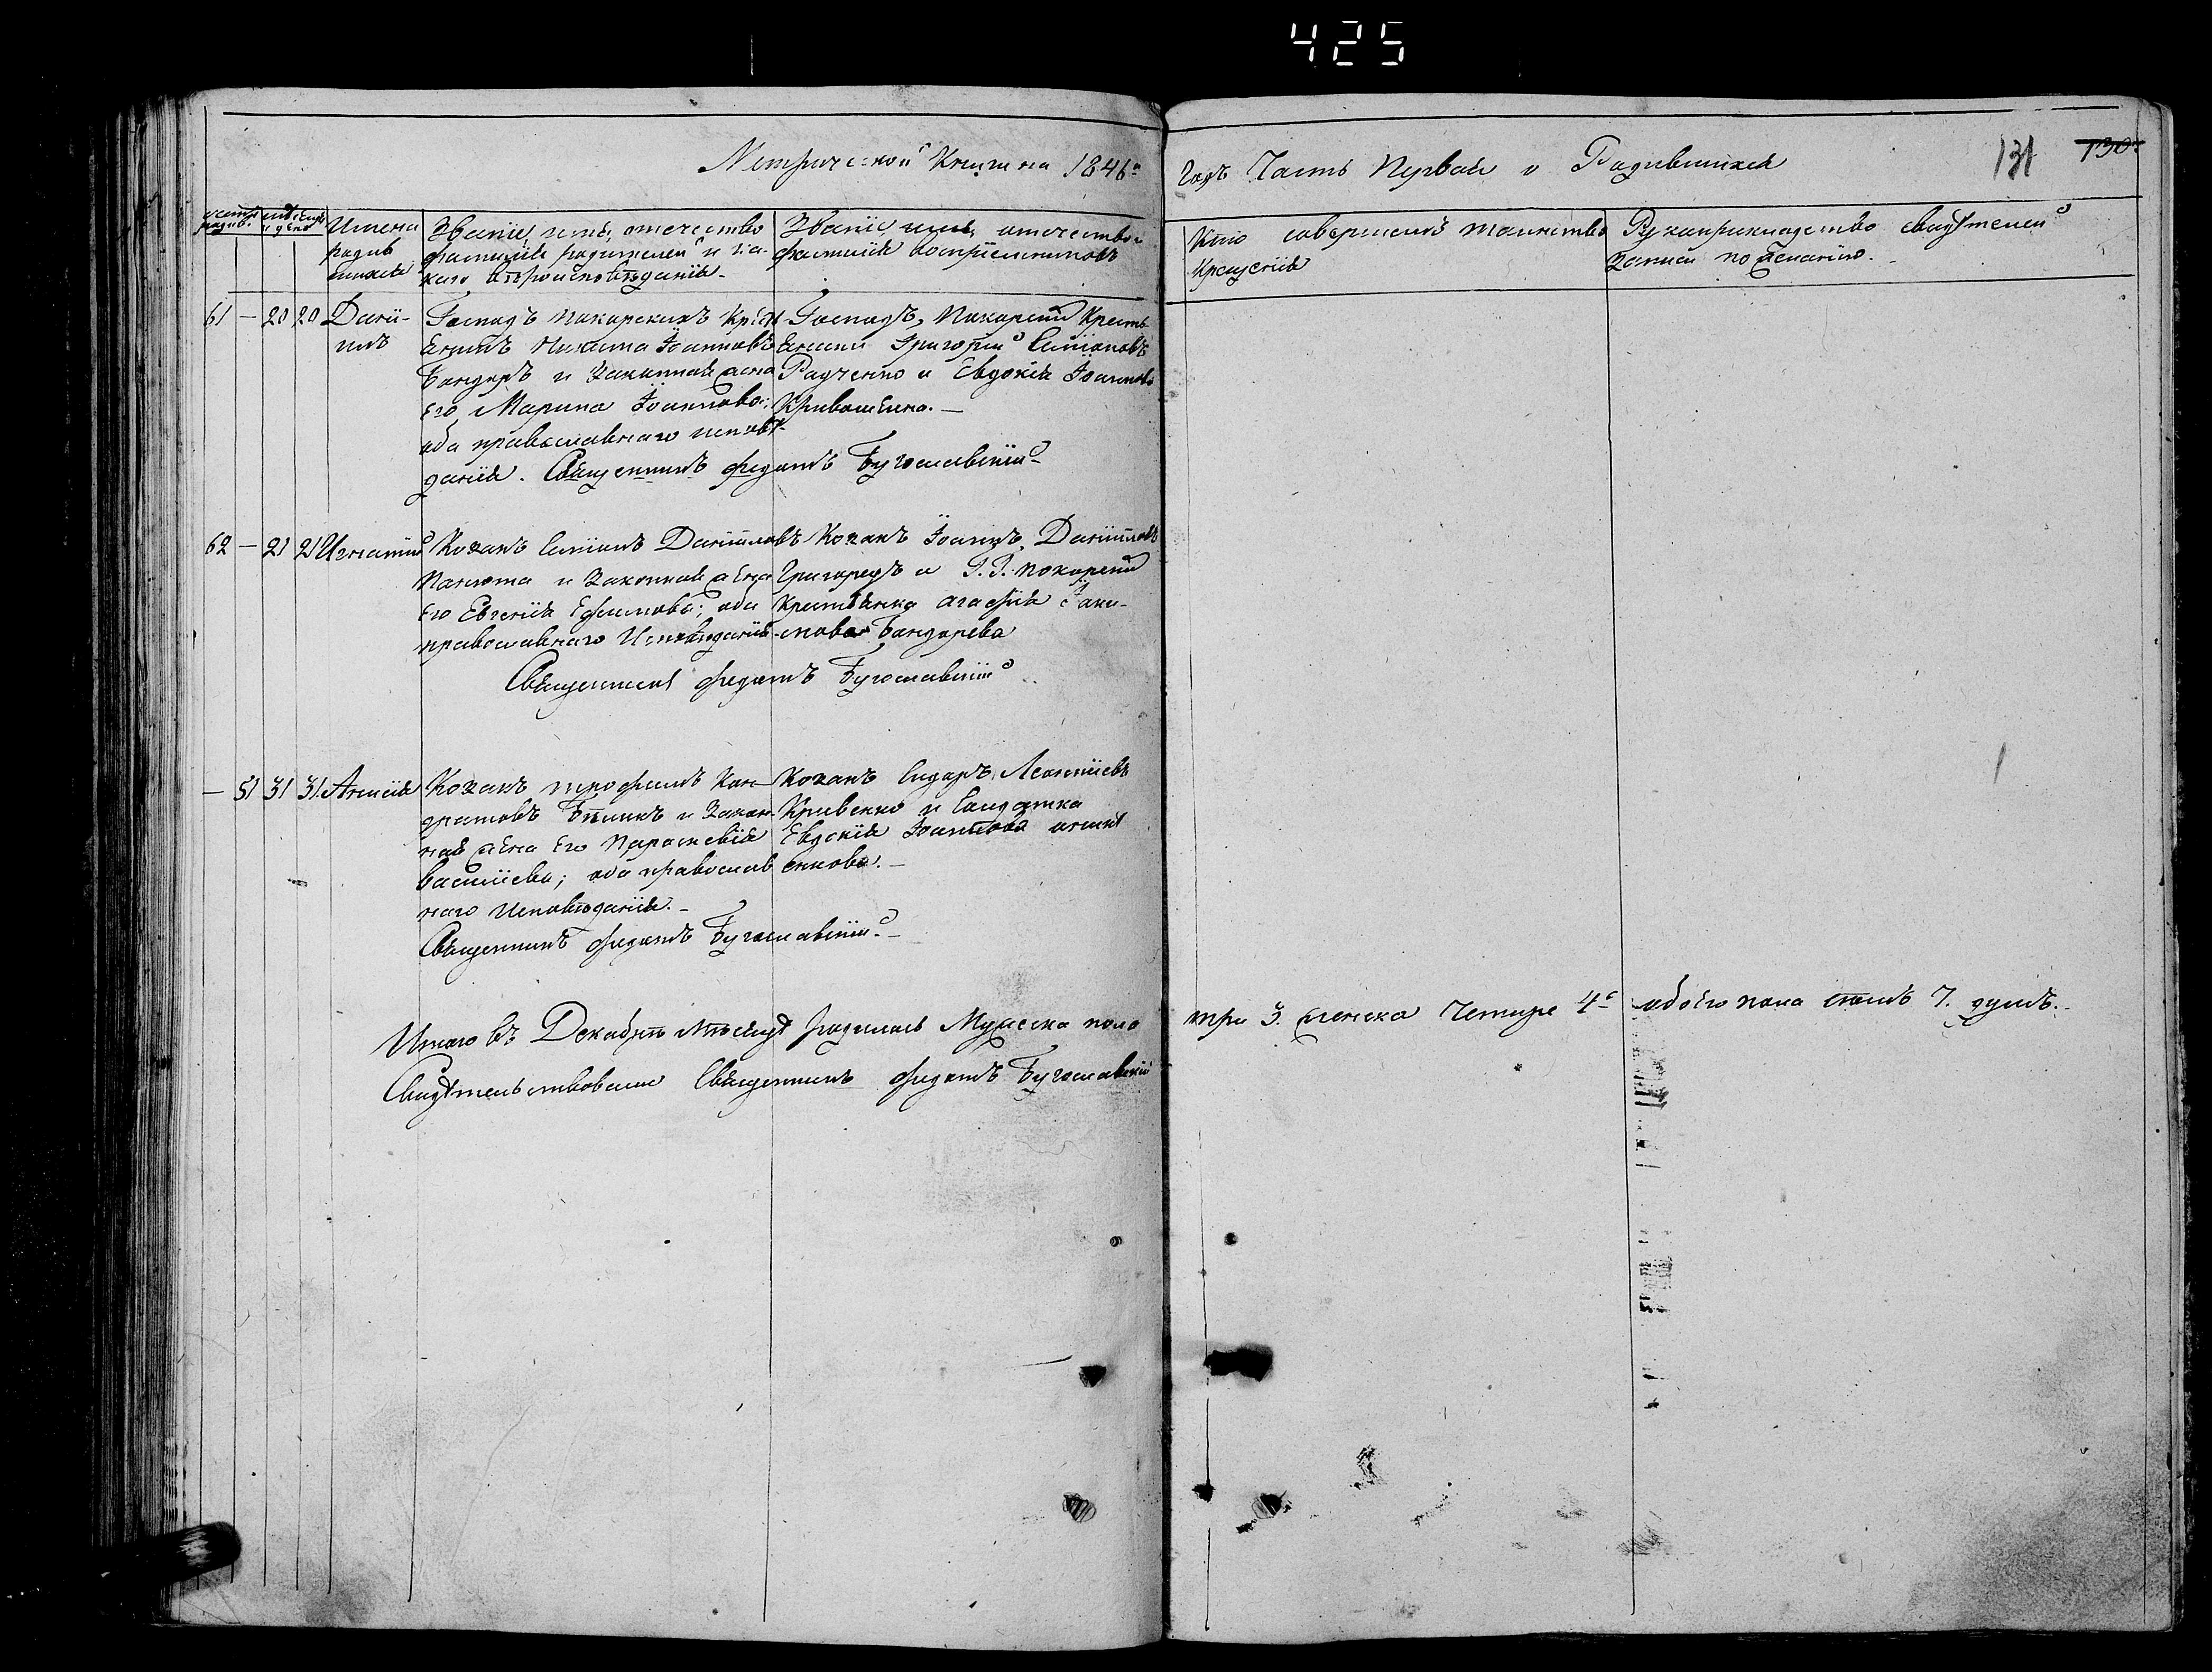 425
Метрической Книги на 1846й
годъ Часть Первая о Родившихся
131 130
Имена
родив
шихся
Званіе, имя, отчество
фамилія родителей и ка-
кого вѣроисповѣданія.
Званіе имя, отчество и
фамилія воспріемниковъ
Кто совершилъ таинство
Крещенія
Рукоприкладство свидѣтелей
записи по желанію.
61 — 20 20 Дани-
илъ
Господъ Покорскихъ Крестъ
янинъ Никита Іоанновъ
Бондаръ и Законная жена
его Марина Іоаннова;
оба православнаго исповѣ-
данія. Священникъ Федотъ Бугославскій
Господъ, Покорской Кресть
янинъ Григорій Симіоновъ
Радченко и Евдокія Іоаннова
Кривошеина. —
62 — 21 21 Игнатій
Козакъ Симіонъ Даніиловъ
Панюта и Законная жена
его Евгенія Ефимова; оба
православнаго Исповѣданія
Козакъ Іоаннъ Даніиловъ
Григоредъ и Г. Г. Покорской
Крестьянка Агафія Іаки-
мова Бондарева
Священникъ Федотъ Бугославскій
— 51 31 31 Анисія
Козакъ Трофимъ Кон-
дратовъ Бѣликъ и Закон-
ная жена Его Параскевія
Василіева; оба православ
наго Исповѣданія. —
Священникъ Федотъ Бугославскій. —
Козакъ Сидоръ Леонтіевъ
Кривенко и Солдатка
Евдокія Іоаннова
енкова. —
Итого въ Декабрѣ Мѣсяцѣ родилось Мужеска пола
три 3. женска Четыре 4е обоего пола семъ 7. душъ.
Свидѣтельствовалъ Священникъ Федотъ Бугославскій